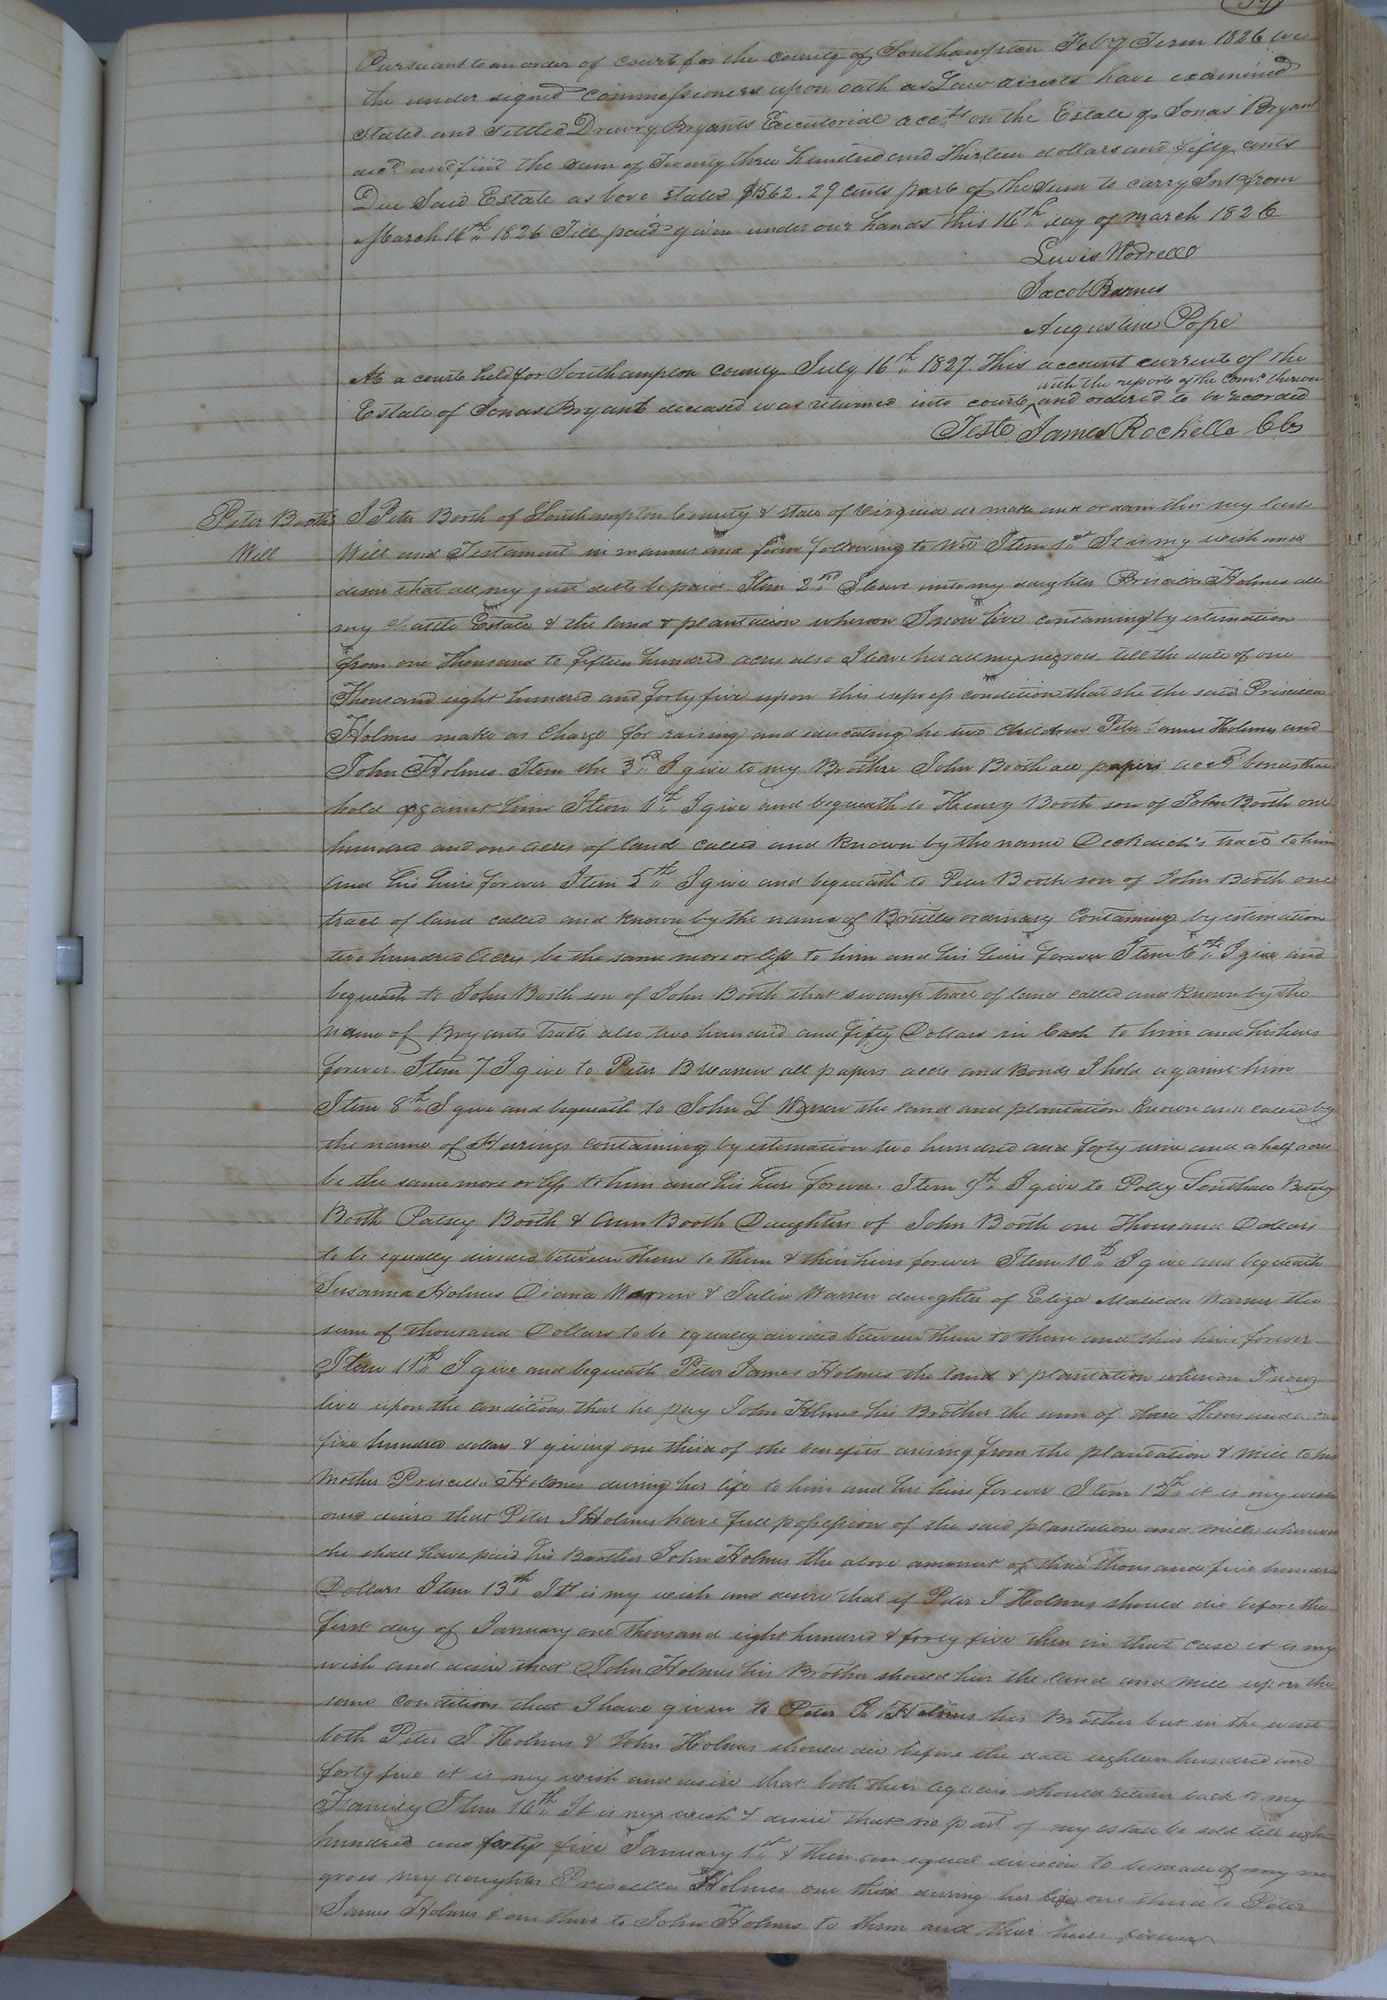 Pursuant to an order of court for the county of Southampton Feby Term 1826 we
the under signed commissioners upon oath as Law directs have examined
stated and settled Drewry Bryants Executorial accts on the Estate of Jonas Bryant
decd and find the sum of Twenty three hundred and Thirteen dollars and fifty cents
Due Said Estate as bove stated $1562.29 cents part of the sum to carry Int from
March 16th 1826 Till paid given under our hands this 16th day of March 1826
Lewis Worrell
Jacob Barnes
Augustine Pope
At a court held for Southampton County July 16th 1827 This account current of the
with the report of the Comrs thereon
Estate of Jonas Bryant deceased was returned into court and ordered to be recorded
Teste James Rochelle Clk
Peter Booths Will
I Peter Booth of Southampton County & state of Virginia do make and ordain this my last
Will and Testament in manner and form following to wit Item 1st It is my wish and
desire that all my just debts be paid. Item 2nd I leave unto my daughter Priscilla Holmes all
my Estate & the land & plantation whereon I now live containing by estimation
from one Thousand to fifteen hundred acres also I leave her all my negroes till the date of one
Thousand eight hundred and forty five upon this express condition that she the said Priscilla
Holmes make no charge for raising and educating he two children Peter James Holmes and
John Holmes Item the 3rd I give to my Brother John Booth all papers accts bonds that
hold against him Item 4th I give and bequeath to Henry Booth son of John Booth one
hundred and one acres of land called and known by the name tract to him
and his heirs forever Item 5th I give and bequeath to Peter Booth son of John Booth one
tract of land called and known by the name of ordinary Containing by estimation
two hundred Acres be the same more or less to him and his heirs forever Item 6th I give and
bequeath to John Booth son of John Booth that swamp tract of land called and known by the
name of Bryants Tract also two hundred and fifty Dollars in Cash to him and his heirs
forever Item 7 I give to Peter B Warren all papers accts and Bonds I hold against him
Item 8th I give and bequeath to John L Warren the land and plantation known and called by
the name of Herrings containing by estimation two hundred and forty nine and a half acres
be the same more or less to him and his heirs forever. Item 9th I give to Polly Betsey
Booth Patsey Booth & Ann Booth Daughters of John Booth one Thousand Dollars
to be equally divided between them to them & their heirs forever Item 10th I give and bequeath
Susanna Holmes Diana Warren & Julia Warren daughter of Eliza Matilda Warren the
sum of thousand Dollars to be equally divided between them to them and their heirs forever
Item 11th I give and bequeath Peter James Holmes the land & plantation whereon I now
live upon the conditions that he pay John Holmes his Brother the sum of three thousand
five hundred dollars & giving one third of the benefits arising from the plantation & mill to his
Mother Priscilla Holmes during her life to him and his heirs forever Item 12th it is my wish
and desire that Peter J Holmes have full possession of the said plantation and mill whenever
he shall have paid his Brother John Holmes the above amount of three thousand five hundred
Dollars Item 13th It is my wish and desire that if Peter J Holmes should die before the
first day of January one thousand eight hundred & forty five then in that case it is my
wish and desire that John Holmes his Brother should heir the land and mill upon the
same conditions that I have given to Peter J Holmes his Brother but in the event
both Peter J Holmes & John Holmes should die before the date eighteen hundred and
forty five it is my wish and desire that both their legacies should return back to my
Family Item 14th It is my wish & desire that no part of my estate be sold till eigh
hundred and forty five January 1st & then an equal division to be made of my ne
groes my daughter Priscilla Holmes one third during her life one third to Peter
James Holmes & one third to John Holmes to them and their heirs forever